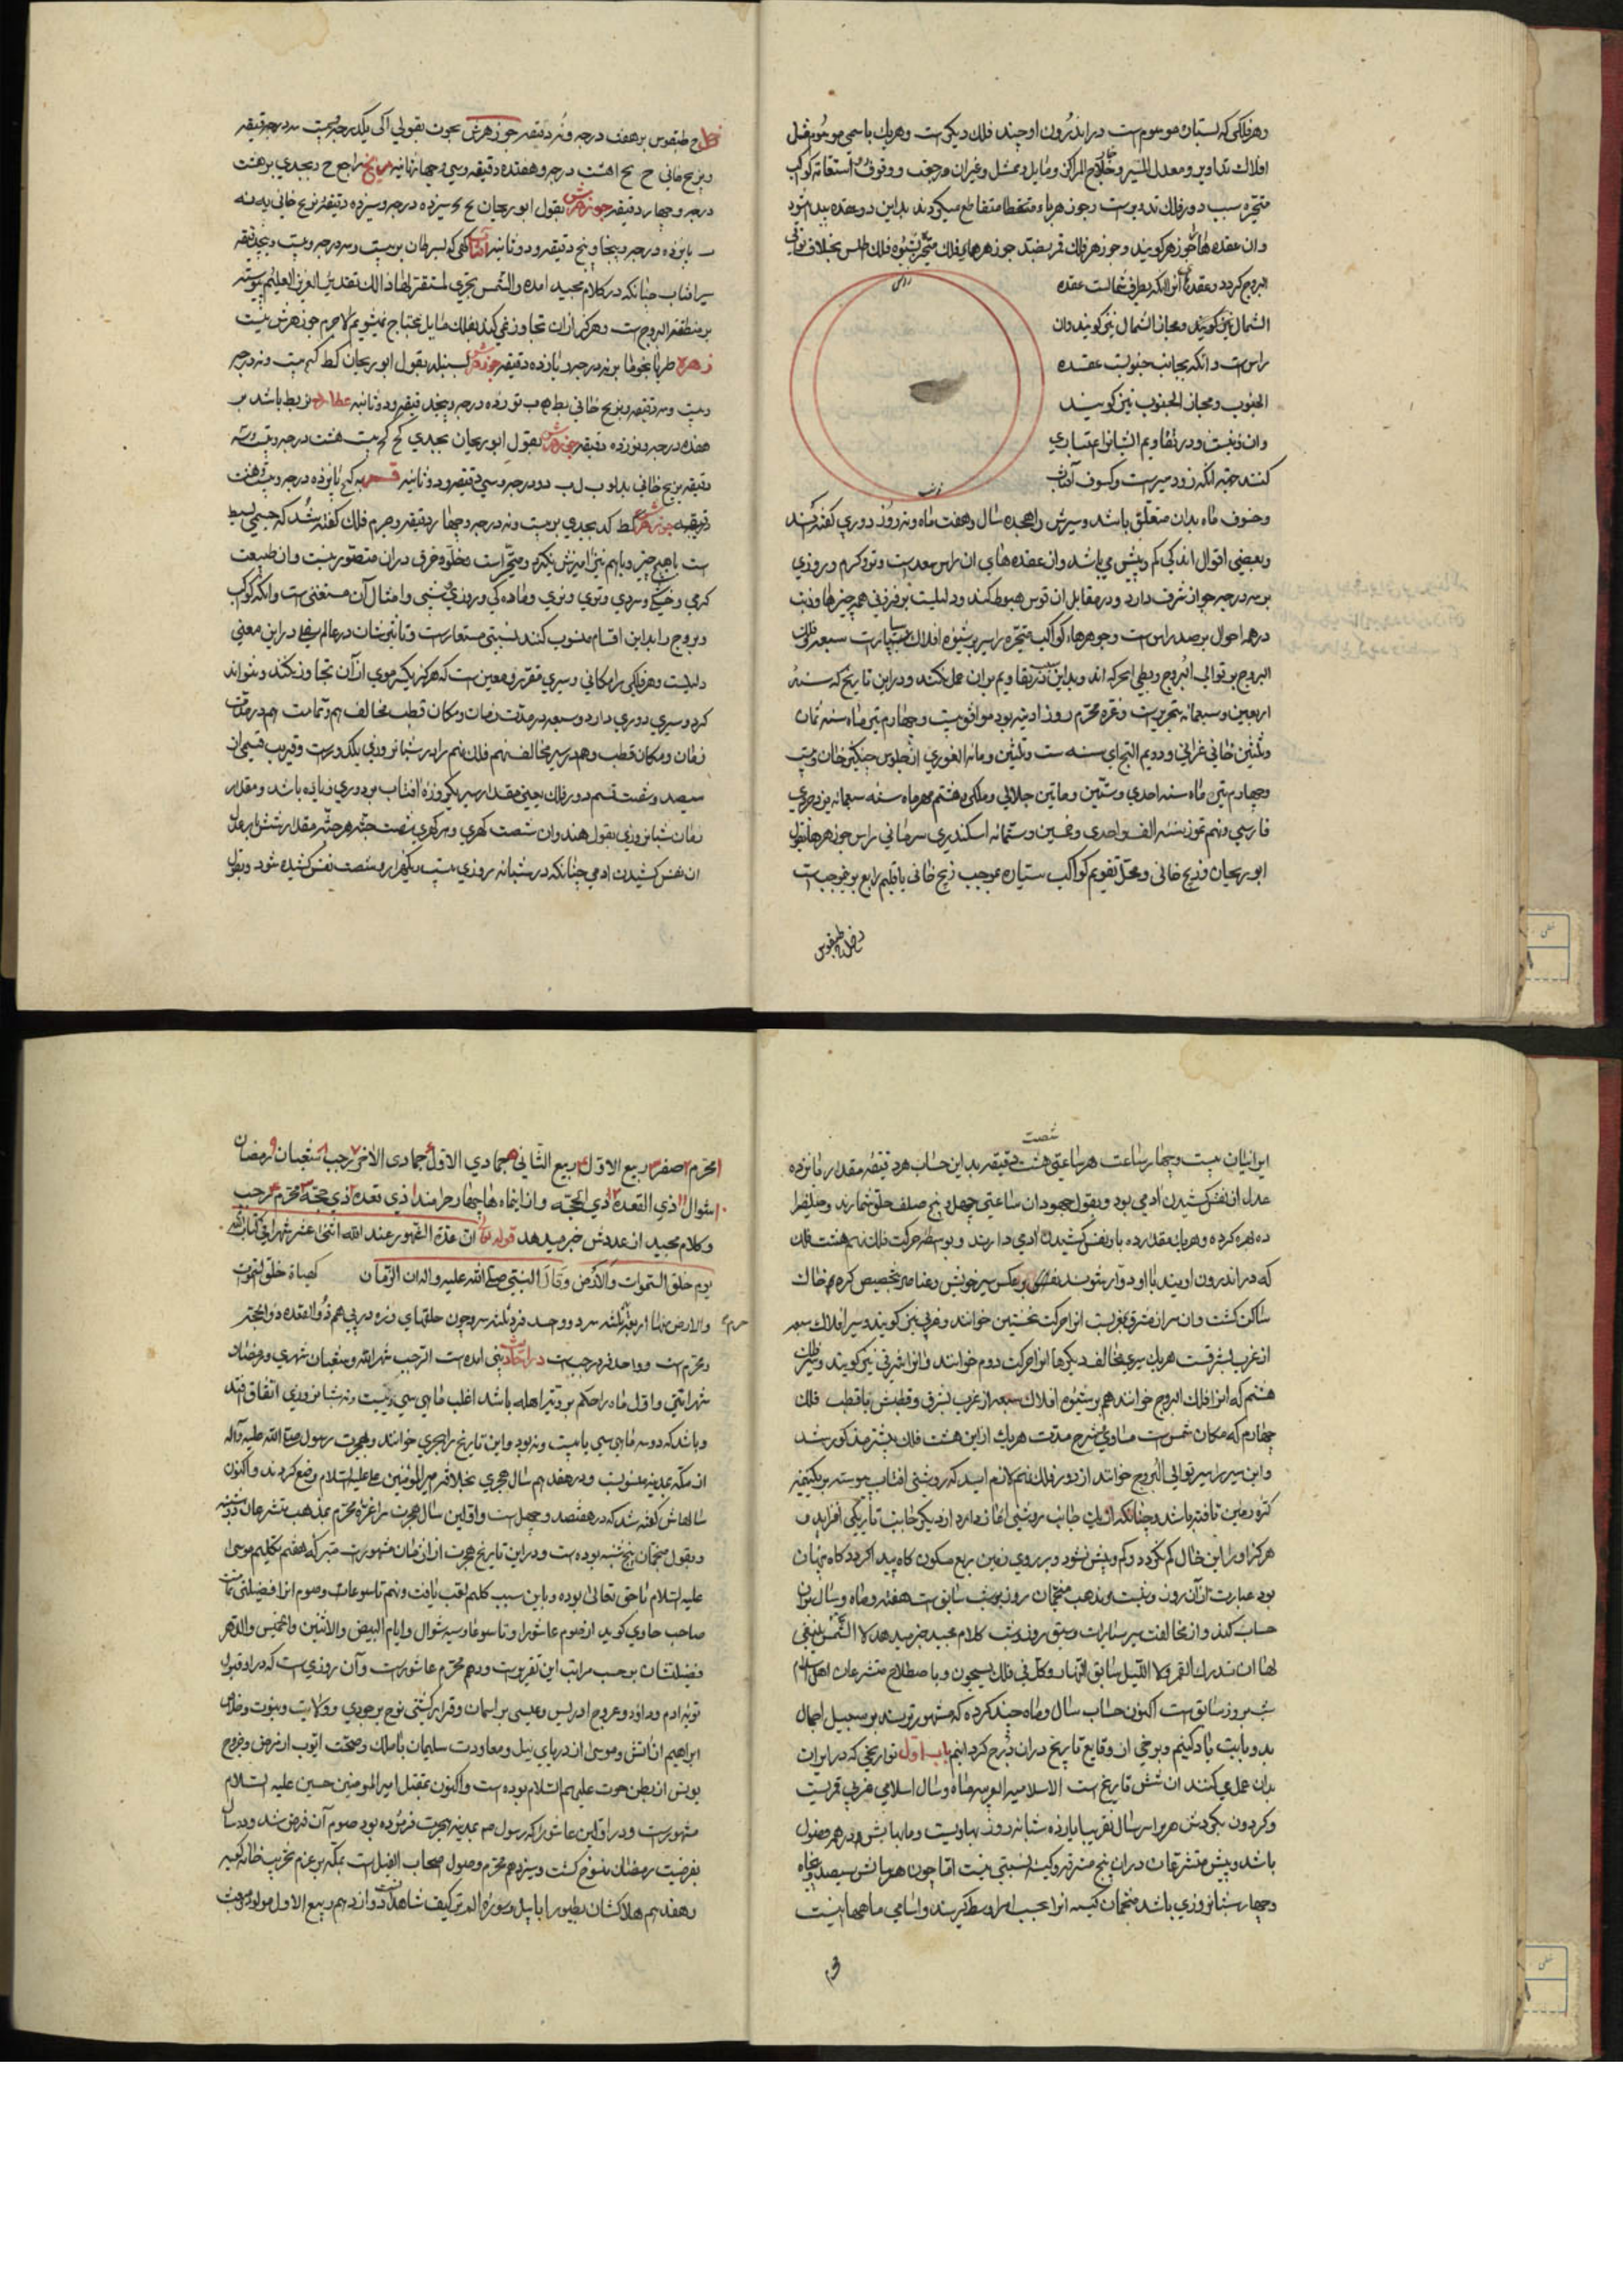 وهر فلکی که بستان موسوم است در اندرون او چند فلک دیگرست وهریک باسمی موسوم مثل
افلاک تداویر و معدل المسیر و خارج المرکز و مایل و ممثل و غیران و رجعت و وقوف و استقامة کواکب
متحیره سبب دور فلک تدویرست و جوزهر
وان عقده ها را جوزهر کویند و جوزهر فلک قمر
البروج کردد و عقده انرا که بطرف شمالست عقده
الشمال نیز کویند و مجاز الشمال نیز کویند وان
راس است و انکه بجانب جنوبست عقده
الجنوب و مجاز الجنوب نیز کویند
وان ذنبست و در تقاویم ایشانرا اعتباری
کنند جهة انکه زود سیرست و کسوف آفتاب
راس
ذنب
و خسوف ماه بدان متعلق باشد و سیرش را هجده سال و هفت ماه و نه روز دوری کفته کنند
و بعضی اقوال اندکی کم و بیش می باشد وان عقده های ان راس سعدست و نر و کرم و روزی
بر سه درجه جوزا شرف دارد و در مقابل ان قوس هبوط کند و دلیلست بر فزونی همه چیزها و ذنب
در همه احوال بر ضد راس است و جوهرهاء کواکب متحیره را سیر بر شیوه افلاک
البروج بر توالی البروج و بطی الحرکه اند و بدین سبب در تقاویم بران عمل نکنند و در این تاریخ که سنه
اربعین و سبعمائه هجریست و غره محرم روز ادینه بود موافق بیست و چهارم تیر ماه سنه ثمان
و ثلثین خانی غزانی و دویم التنج ای سنه ست و ثلثین و مائه الغوری از جلوس چنکیز خان و بیست
و چهارم تیر ماه سنه احدی و ستین و مائتین جلالی و ملکی و هفتم مهر ماه سنه سبعمائه یزدجردی
فارسی و نهم تموز سنه الف واحدی و خمسین و ستمائه اسکندری سریانی راس جوزهرها بقول
ابوریحان و زیج خانی و محل تقویم کواکب سیاره بموجب زیج خانی باقلیم رابع بر نموجب است
زحل طیقوس
زحل ح طیقوس بر هفت درجه و نه دقیقه جوزهرش بحوت بقولی
و بزیج خانی ح یح ا هشت درجه و هفتده دقیقه و سی و چهار ثانیه مریخ راجع ح د بجدی بر هشت
درجه و چهار دقیقه جوزهرش بقول ابوریحان یح یح سیزده درجه و سیزده دقیقه بزیج خانی یه نه
ب پانزده درجه و پنجاه و پنج دقیقه و دو ثانیه آفتاب کح که بسرطان بر بیست و سه درجه و بیست و پنج دقیقه
سیر افتاب چنانکه در کلام مجید امده والشمس تجری لمستقر لها ذالک تقدیر العزیز العلیم پیوسته
بر منطقه البروج است و هرکز از ان تجاوز نمی کند بفلک مایل محتاج نمیشویم لاجرم جوزهرش نیست
زهره ط یا بجوزا بر نه درجه و یازده دقیقه جوزهرش بسنبله بقول ابوریحان کط کح بیست و نه درجه
و بیست و سه دقیقه و بزیج خانی یط ه ب نوزده درجه و پنج دقیقه و دو ثانیه عطارد یز یط باشد بر
هفده درجه و نوزده دقیقه جوزهرش بقول ابوریحان بجدی کح کح بیست هشت درجه و بیست و سه
دقیقه بزیج خانی بدلو ب ل ب دو درجه و سی دقیقه و دو ثانیه قمر یه کح پانزده درجه و بیست و هشت
دقیقه جوزهرش کط کد بجدی بر بیست و نه درجه و چهار دقیقه و جرم فلک کفته شد که جسمی بسیط
است با هیچ چیز و با هم نیز امیزش نکیرد و متحیز است و خلو و خرق دران متصور نیست وان طبیعت
کرمی و خشکی و سردی و تری و نری و ماده کی و روزی و شبی و امثال آن مستغنی است و انکه کواکب
و بروج را بدین اقسام منسوب کنند نسبتی مستعارست و تاثیرشان در عالم سفلی دراین معنی
دلیلست و هر فلکی را مکانی و سیری مقرر و معین است که هرکز یکسر موی از آن تجاوز نکند و نتواند
کرد و سیری دوری دارد و سبعه در مدت زمان و مکان قطب مخالف هم و ثامنه هم در مدت
زمان و مکان قطب و هم در سیر مخالف نهم فلک نهم را در شبانروزی یکدورست و قریب قسمی از
سیصد و شصت قسم دور فلک یعنی مقدار سیر یکروزه افتاب بر دوری زیاده باشد و مقدار
زمان شبانروزی بقول هند وان شصت کهری و هر کهری شصت جشه هر جشه مقدار شش بار عدل
ان نفس کشیدن ادمی چنانکه در شبانه روزی بیست و یکهزار و ششصد نفس کشیده شود و بقول
ایرانیان بیست و چهار ساعت هر ساعتی شصت دقیقه بدین حساب هر دقیقه مقدار پانزده
عدل ان نفس کشیدن ادمی بود و بقول جهودان ساعتی چهل و پنج صلف حلق شمارند و حلقرا
ده بهره کرده و هر یک مقدار ده بار نفس کشیدن ادمی دارند و بواسطه حرکت فلک نهم هشت فلک
که در اندرون اویند با او دوار شوند بعضی بر عکس سیر خویش و عناصر بتخصیص کره خاک
ساکن کشت وان سیر از مشرق بمغربست انرا حرکت نخستین خوانند و غربی نیز کویند و سیر افلاک سبعه
از غرب بشرقست هر یک سیری مخالف دیکرها انرا حرکت دوم خوانند و انرا شرقی نیز کویند و سیر فلک
هشتم که انرا فلک البروج خوانند هم بر شیوه افلاک سبعه از غرب بشرق و قطبش با قطب فلک
چهارم که مکان شمس است مساوی شرح مدت هر یک از این هشت فلک پیشتر مذکور شد
و این سیر را سیر توالی البروج خوانند از دور فلک نهم لازم اید که روشنی افتاب پیوسته بر یکنیمه
کره زمین تافته باشد و چنانکه از یک جانب روشنی اغاز دارد از دیکر جانب تاریکی افزاید و
هرکز او را این حال کم نکردد و کم و بیش نشود و بر روی زمین ربع مسکون کاه پیدا کردد کاه پنهان
بود عبارت از آن روز و شبست و بمذهب منجمان روز بر شب سابق است هفته و ماه و سال بران
حساب کنند و از مخالفت سیر سیارات و سبق روز و شب کلام مجید خبر میدهد لا الشمس ینبغی
لها ان تدرک القمر ولا اللیل سابق النهار وکل فی فلک یسبحون و باصطلاح متشرعان اهل اسلام
شب بر روز سابق است اکنون حساب سال و ماه چند کرده که مشهورترند بر سبیل اجمال
بدو بابت یاد کنیم و برخی از وقایع تاریخ دران درج کردانیم باب اول تواریخی که در ایران
بدان عمل می کنند ان شش تاریخ است الاسلامیه العربیه ماه و سال اسلامی عربی قمریست
و کردون بکردش هر براسه سال تقریبا یازده شبانه روز نهاویست و ماههایش در همه فصول
باشد و پیش متشرعان دران پنج مسترقه و کبیسه نسبتی نیست اما چون هر سالش سیصد و پنجاه
و چهار شبانروزی باشد منجمان کبیسه انرا بحسب امر اوسط کیرند و اسامی ماهها اینست
محرم
۱ محرم ۲ صفر ۳ ربیع الاول ۴ ربیع الثانی ۵ جمادی الاول ۶ جمادی الاخر ۷ رجب ۸ شعبان ۹ رمضان
۱۰ شوال ۱۱ ذی القعده ۱۲ ذی الحجه وازین ماهها چهار حرامند ۱ ذی قعده ۲ ذی حجه ۳ محرم ۴ رجب
و کلام مجید از عددش خبر میدهد قوله تعالی ان عدة الشهور عند الله اثنی عشر شهرا فی کتاب الله
یوم خلق السموات والارض وقال النبی صلی الله علیه واله ان الزمان کهیاة خلق السموات
والارض منها اربعة حرم ثلثه سرد و واحد فرد ثلثه سرد چون حلقهای زره در پی هم ذوالقعده ذوالحجه
و محرم است و واحد فرد رجب است در احادیث نبی امده است الرجب شهر الله وشعبان شهری ورمضان
شهر امتی و اول ماه را حکم بر رویة اهله باشد اغلب ماهی سی و بیست و نه شبانروزی اتفاق افتد
و باشد که دو سه ماهی سی یا بیست و نه بود و این تاریخ را هجری خوانند و بهجرت رسول صلی الله علیه وآله
از مکه بمدینه منسوبست و در هفدهم سال هجری بخلافت امیرالمؤمنین علیه السلام وضع کردند و اکنون
سالهاش کفته شد که در هفتصد و چهل است و اولین سال هجرت را غره محرم بمذهب متشرعان
و بقول منجمان پنج شنبه بوده است و دراین تاریخ هجرت ازان زمان مشهورست متبرکه هفتم تکلیم موسی
علیه السلام با حق تعالی بوده و باین سبب کلیم لقب یافت و نهم تاسوعاست و صوم انرا فضیلتی تمامست
صاحب حاوی کوید از صوم عاشورا و تاسوعا و سته شوال و ایام البیض والاثنین والخمیس والدهر
فضیلتشان بر حسب مراتب این تقریرست و دهم محرم عاشورست وآن روزی است که در او قبول
توبه ادم و داود و عروج ادریس و عیسی بر اسمان و قرار کشتی نوح بر جودی و ولادت و نبوت و خلاص
ابراهیم از اتش و موسی از دریای نیل و معاودت سلیمان با ملک و صحت ایوب از مرض و خروج
یونس از بطن حوت علیهم السلام بوده است و اکنون بمقتل امیرالمومنین حسین علیه السلام
مشهورست و در اولین عاشورا که رسول صم بمدینه هجرت فرموده بود صوم آن فرض شد و دوم سال
بفرضیت رمضان منسوخ کشت و سیزدهم محرم وصول اصحاب الفیل است بمکه بر عزم تخریب خانه کعبه
و هفدهم هلاکشان بطیور ابابیل و سوره الم تر کیف شاهدست دوازدهم ربیع الاول مولد